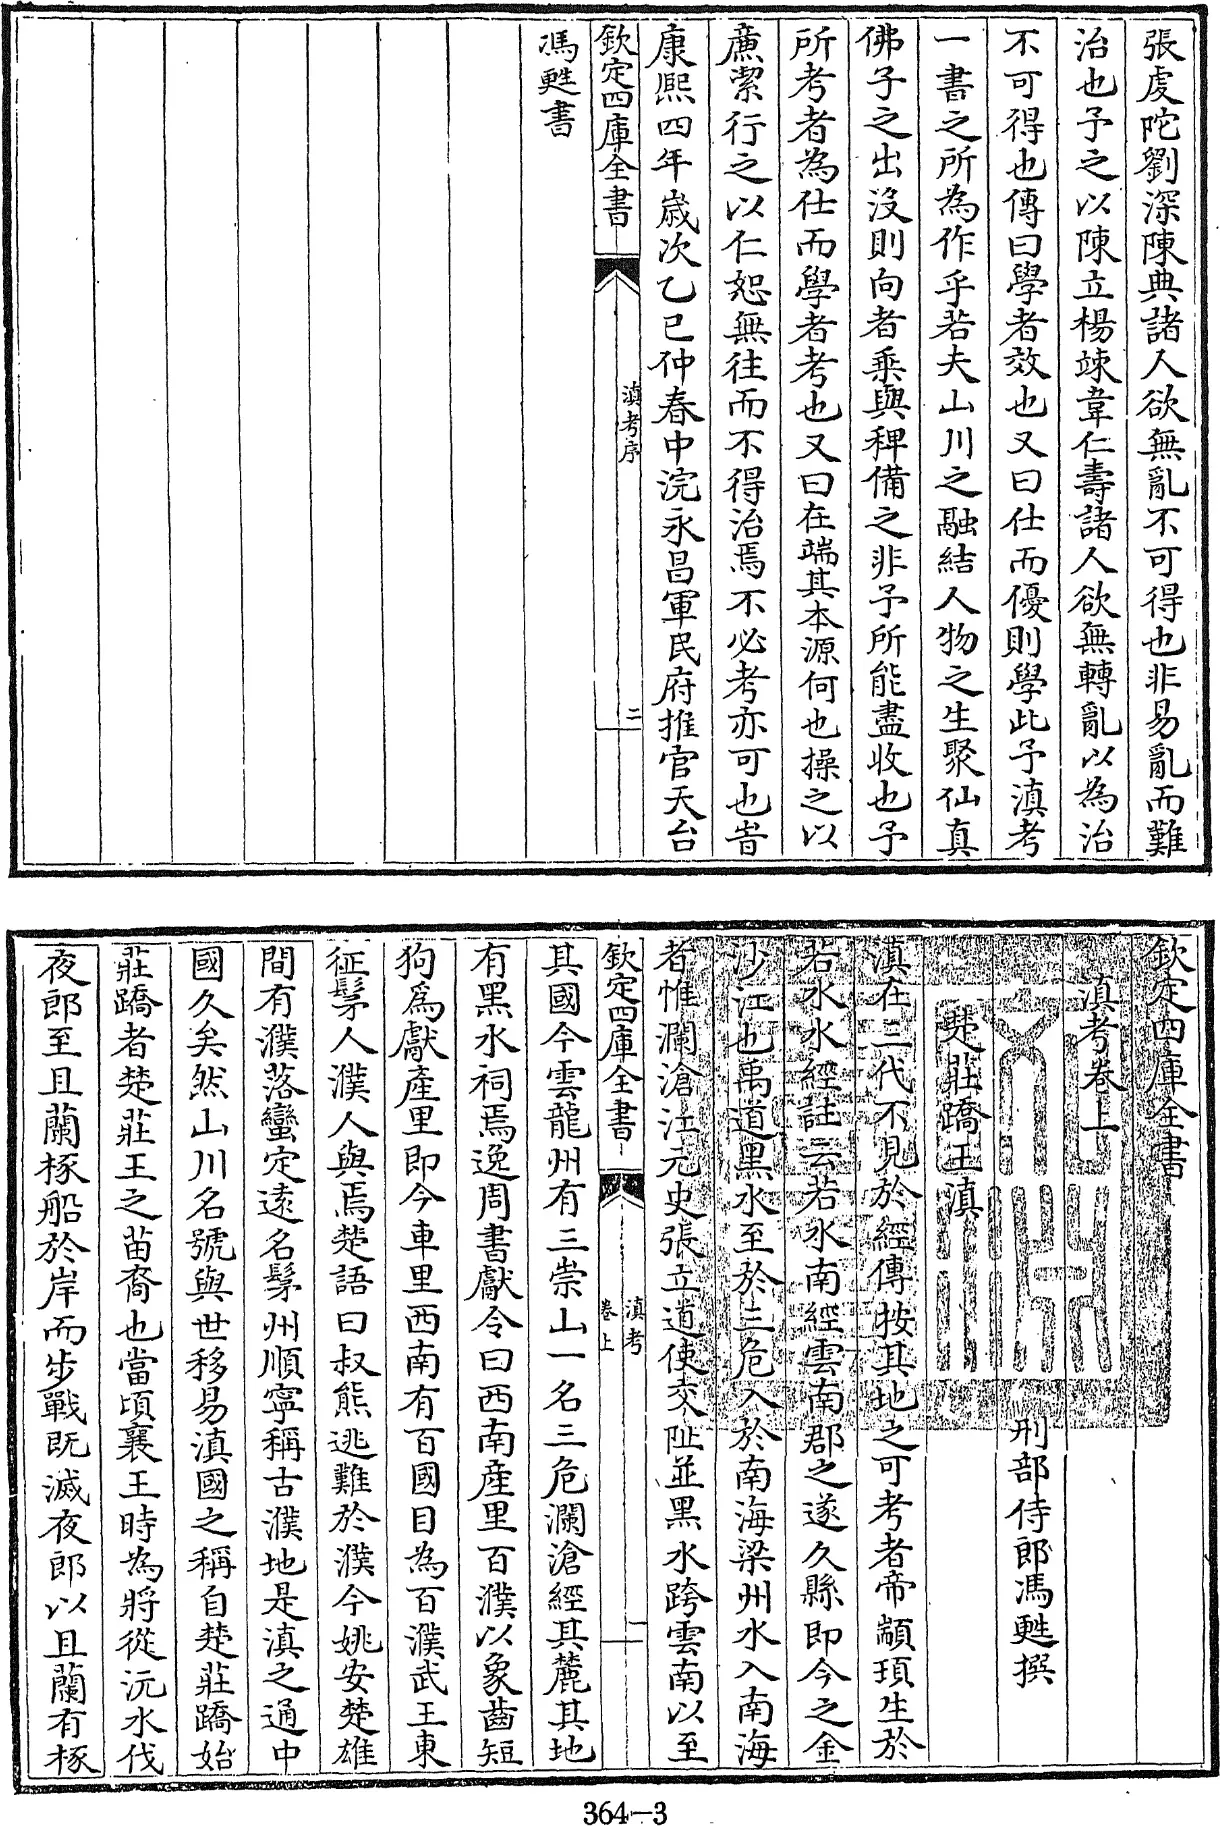 張虔陀劉深陳典諸人欲無亂不可得也非易亂而難
治也予之以陳立楊竦韋仁壽諸人欲無轉亂以為治
不可得也傳曰學者效也又曰仕而優則學此予滇考
一書之所為作乎若夫山川之融結人物之生聚仙真
佛子之出沒則向者乘與稗備之非予所能盡收也予
所考者為仕而學者考也又曰在端其本源何也操之以
亷潔行之以仁恕無往而不得治焉不必考亦可也旹
康熙四年歲次乙巳仲春中浣永昌軍民府推官天台
欽定四庫全書
滇考序
二
馮甦書
欽定四庫全書
滇考卷上
刑部侍郎馮甦撰
楚莊蹻王滇
滇在三代不見於經傳按其地之可考者帝顓頊生於
若水水經註云若水南經雲南郡之遂久縣即今之金
沙江也禹道黑水至於三危入於南海梁州水入南海
者惟瀾滄江元史張立道使交阯並黑水跨雲南以至
欽定四庫全書
滇考
卷上
一
其國今雲龍州有三崇山一名三危瀾滄經其麓其地
有黑水祠焉逸周書獻令曰西南產里百濮以象齒短
狗為獻產里即今車里西南有百國目為百濮武王東
征髳人濮人與焉楚語曰叔熊逃難於濮今姚安楚雄
間有濮落蠻定遠名髳州順寧稱古濮地是滇之通中
國久矣然山川名號與世移易滇國之稱自楚莊蹻始
莊蹻者楚莊王之苗裔也當頃襄王時為將從沅水伐
夜郎至且蘭椓船於岸而步戰既滅夜郎以且蘭有椓
364-3